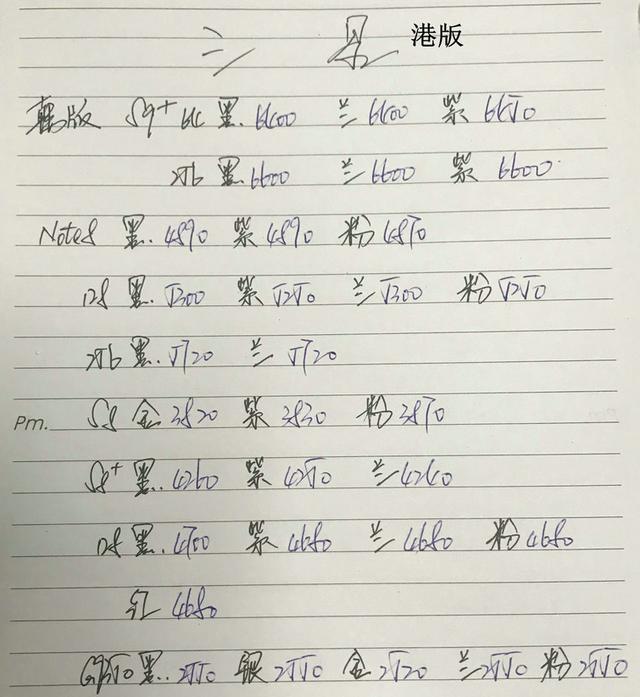 三 星 港版
韩版 S9+ 64 黑.6400 兰6400 紫6450
256 黑6600 兰6600 紫6600
Note8 黑.4890 紫4890 粉4870
128 黑.5300 紫5250 兰5300 粉5250
256 黑.5720 兰5720
Pm. S8 金3820 紫3830 粉3870
S8+ 黑.4260 紫4250 兰4240
128 黑.4700 紫4680 兰4680 粉4680
红4680
G9550 黑.2550 银2550 金2520 兰2550 粉2550